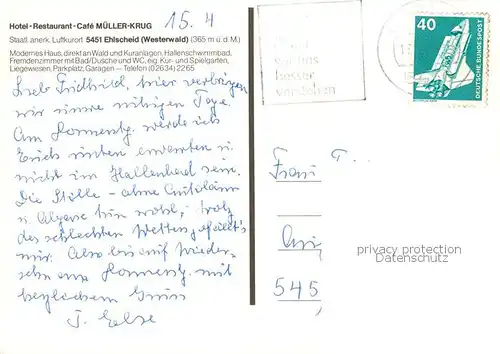 Hotel-Restaurant-Café MÜLLER-KRUG
15. 4
Staatl. anerk. Luftkurort 5451 Ehlscheid (Westerwald) (365 m ü. d. M.)
Modernes Haus, direkt an Wald und Kuranlagen, Hallenschwimmbad,
Fremdenzimmer mit Bad/Dusche und WC, eig. Kur- und Spielgarten,
Liegewiesen, Parkplatz, Garagen – Telefon (02634) 2265
hier verbringen
wir unsre ruhigen Tage.
Am werde ich
Euch unten erwarten u.
nicht im Hallenbad sein.
Die Stille - ohne Autolärm
u. Abgase tut wohl, trotz
des schlechten Wetters gefällt's
mir. Also bis auf Wieder-
sehn am mit
herzlichem Gruss
J.
besser
verstehen
40
DEUTSCHE BUNDESPOST
Frau T.
545
privacy protection
Datenschutz